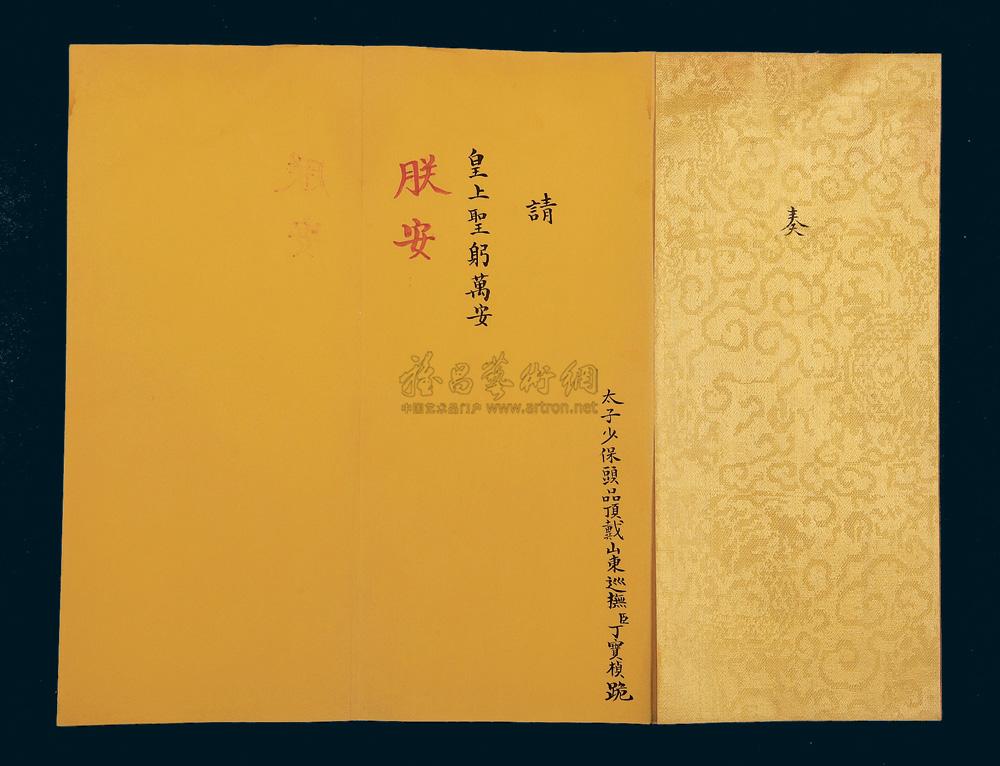 奏
太子少保頭品頂戴山東巡撫臣丁寶楨跪
請
皇上聖躬萬安
朕安
雅昌藝術網
中国艺术品门户 www.artron.net